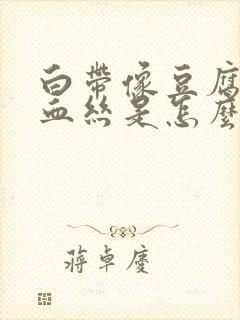 白帶像豆腐
血絲是怎麼
蔣卓慶